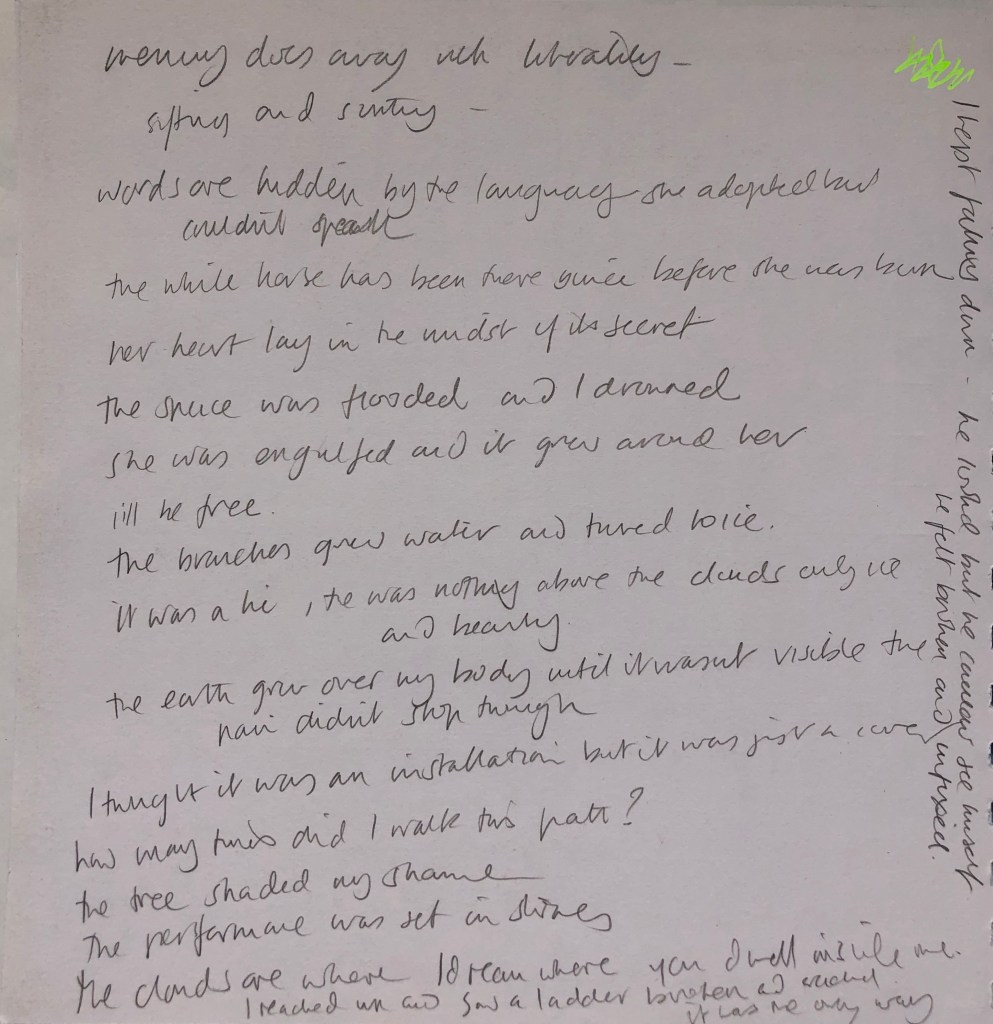 memory does away with literality -
sifting and sorting -
words are hidden by the language she adopted but
couldn't speak
the white horse has been there since before she was born
her heart lay in the midst of its secret
the space was flooded and I drowned
she was engulfed and it grew around her
till he free.
the branches grew water and turned to ice.
it was a lie, there was nothing above the clouds only ice
and beauty.
the earth grew over my body until it wasn't visible the
pain didn't stop though
I thought it was an installation but it was just a
how many times did I walk this path?
the tree shaded my shame
The performance was set in
the clouds are where I dream where you dwell inside me.
I reached up and saw a ladder broken and
it was the only way
I kept falling down - he looked but he couldn't see himself
he felt broken and unfixed.